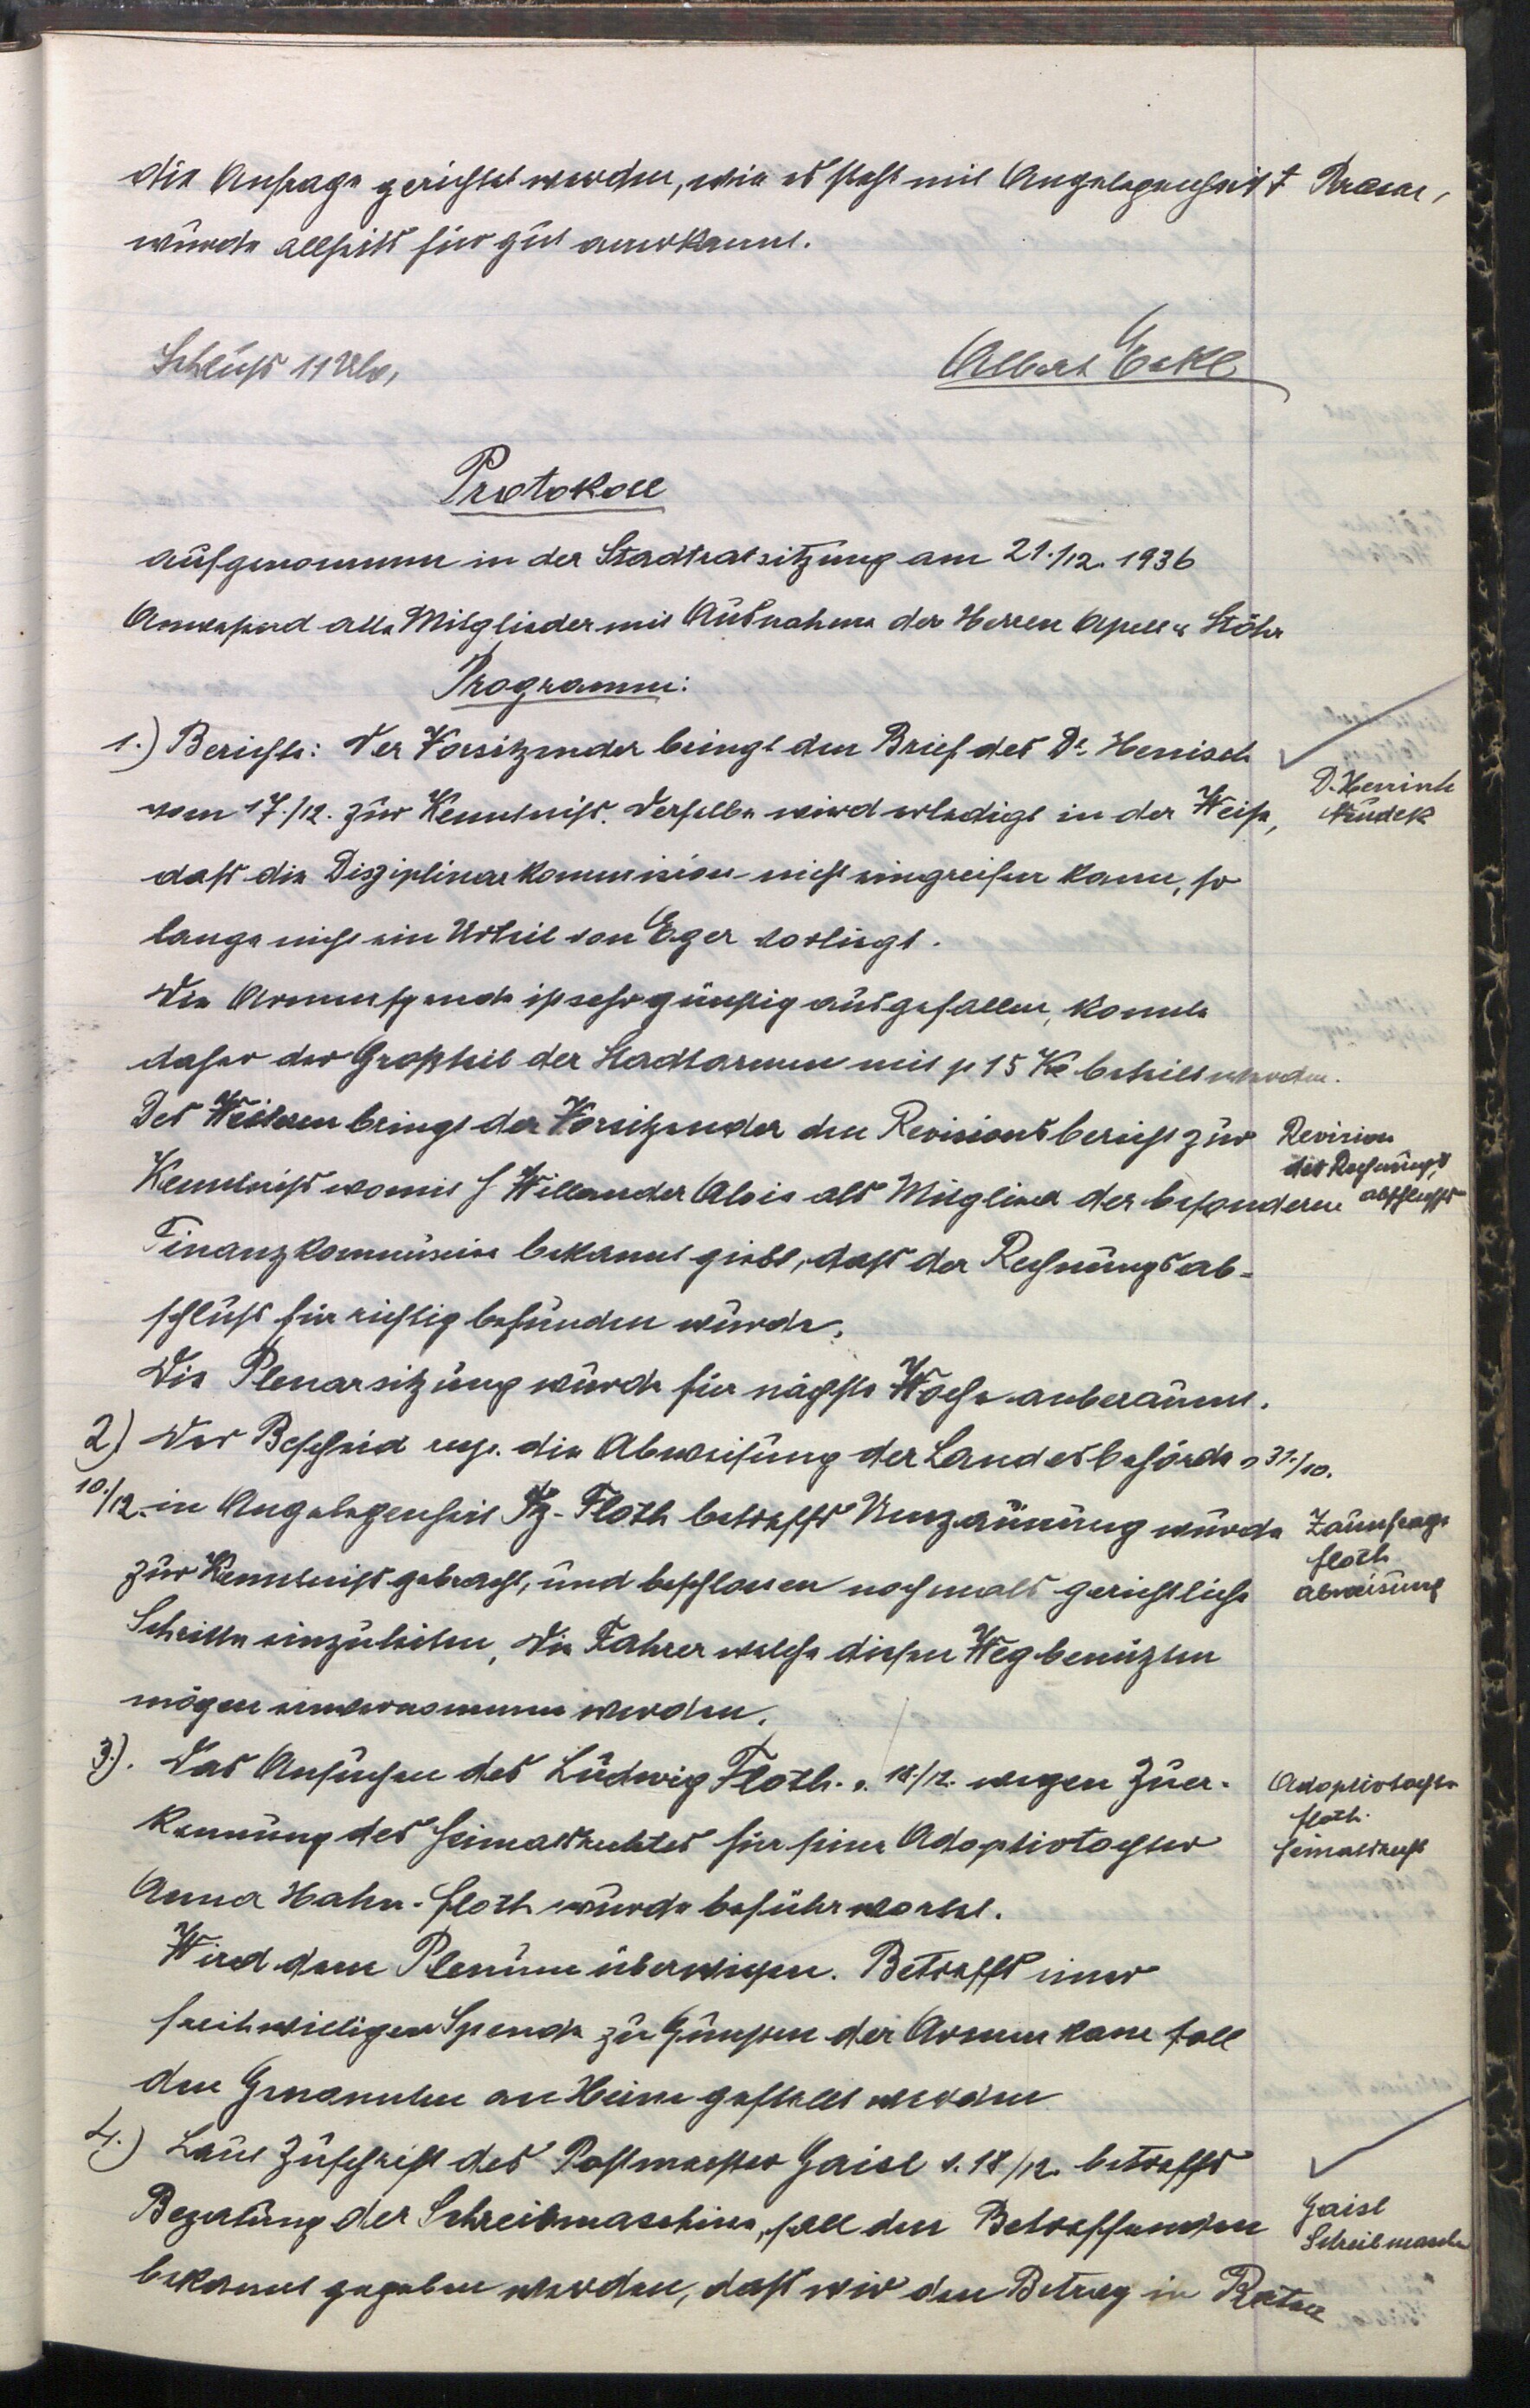 die Anfrage gerichtet werden, wie es steht mit Angelegenheit
wurde allseits für gut anerkannt.
Schluss 11 Uhr,
Albert Eckl
Protokoll
aufgenommen in der Stadtratsitzung am 21./12. 1936
Anwesend alle Mitglieder mit Ausnahme der Herren Apell u Stöhr
Programm:
1.) Berichte: Der Vorsitzender bringt den Brief des Dr. Henisch
D. Henisch
Neudek
vom 17./12. zur Kenntniss. Derselbe wird erledigt in der Weise,
dass die Disziplinarkommission nicht eingreifen kann, so
lange nicht ein Urteil von Eger vorliegt.
Die Armenspende ist sehr günstig ausgefallen, konnte
daher der Großteil der Stadtarmen mit je 15 Kč beteilt werden.
Des Weiteren bringt der Vorsitzender den Revisionsbericht zur
Revision
des Rechnungs,
abschlusses
Kenntniss womit H Willander Alois als Mitglied der besonderen
Finanzkommission bekannt giebt, dass der Rechnungsab-
schluss für richtig befunden wurde.
Die Plenarsitzung wurde für nächste Woche anberaumt.
2.) Der Bescheid resp. die Abweisung der Landesbehörde v 31./10.
10./12. in Angelegenheit Fz. Floth betreffs Umzäunung wurde
Zaunfrage
Floth
abweisung
zur Kenntniss gebracht, und beschlossen nochmals gerichtliche
Schritte einzuleiten, die Fahrer welche diesen Weg benützten
mögen einvernommen werden.
3.). Das Ansuchen des Ludwig Floth. v. 18./12. wegen Zuer-
Adoptivtochter
Floth
Heimatrecht
kennung des Heimatrechtes für seine Adoptivtochter
Anna Hahn-Floth wurde beführwortet.
Wird dem Plenum überwiesen. Betreffs einer
freihwilligen Spende zu Gunsten der Armen kann soll
den Genannten an Heim gestellt werden
4.) Laut Zuschrift des Postmeister Gaisl v. 18/12. betreffs
Gaisl
Schreibmasch
Bezalung der Schreibmaschine, soll den Betreffenden
bekannt gegeben werden, dass wir den Betrag in Raten